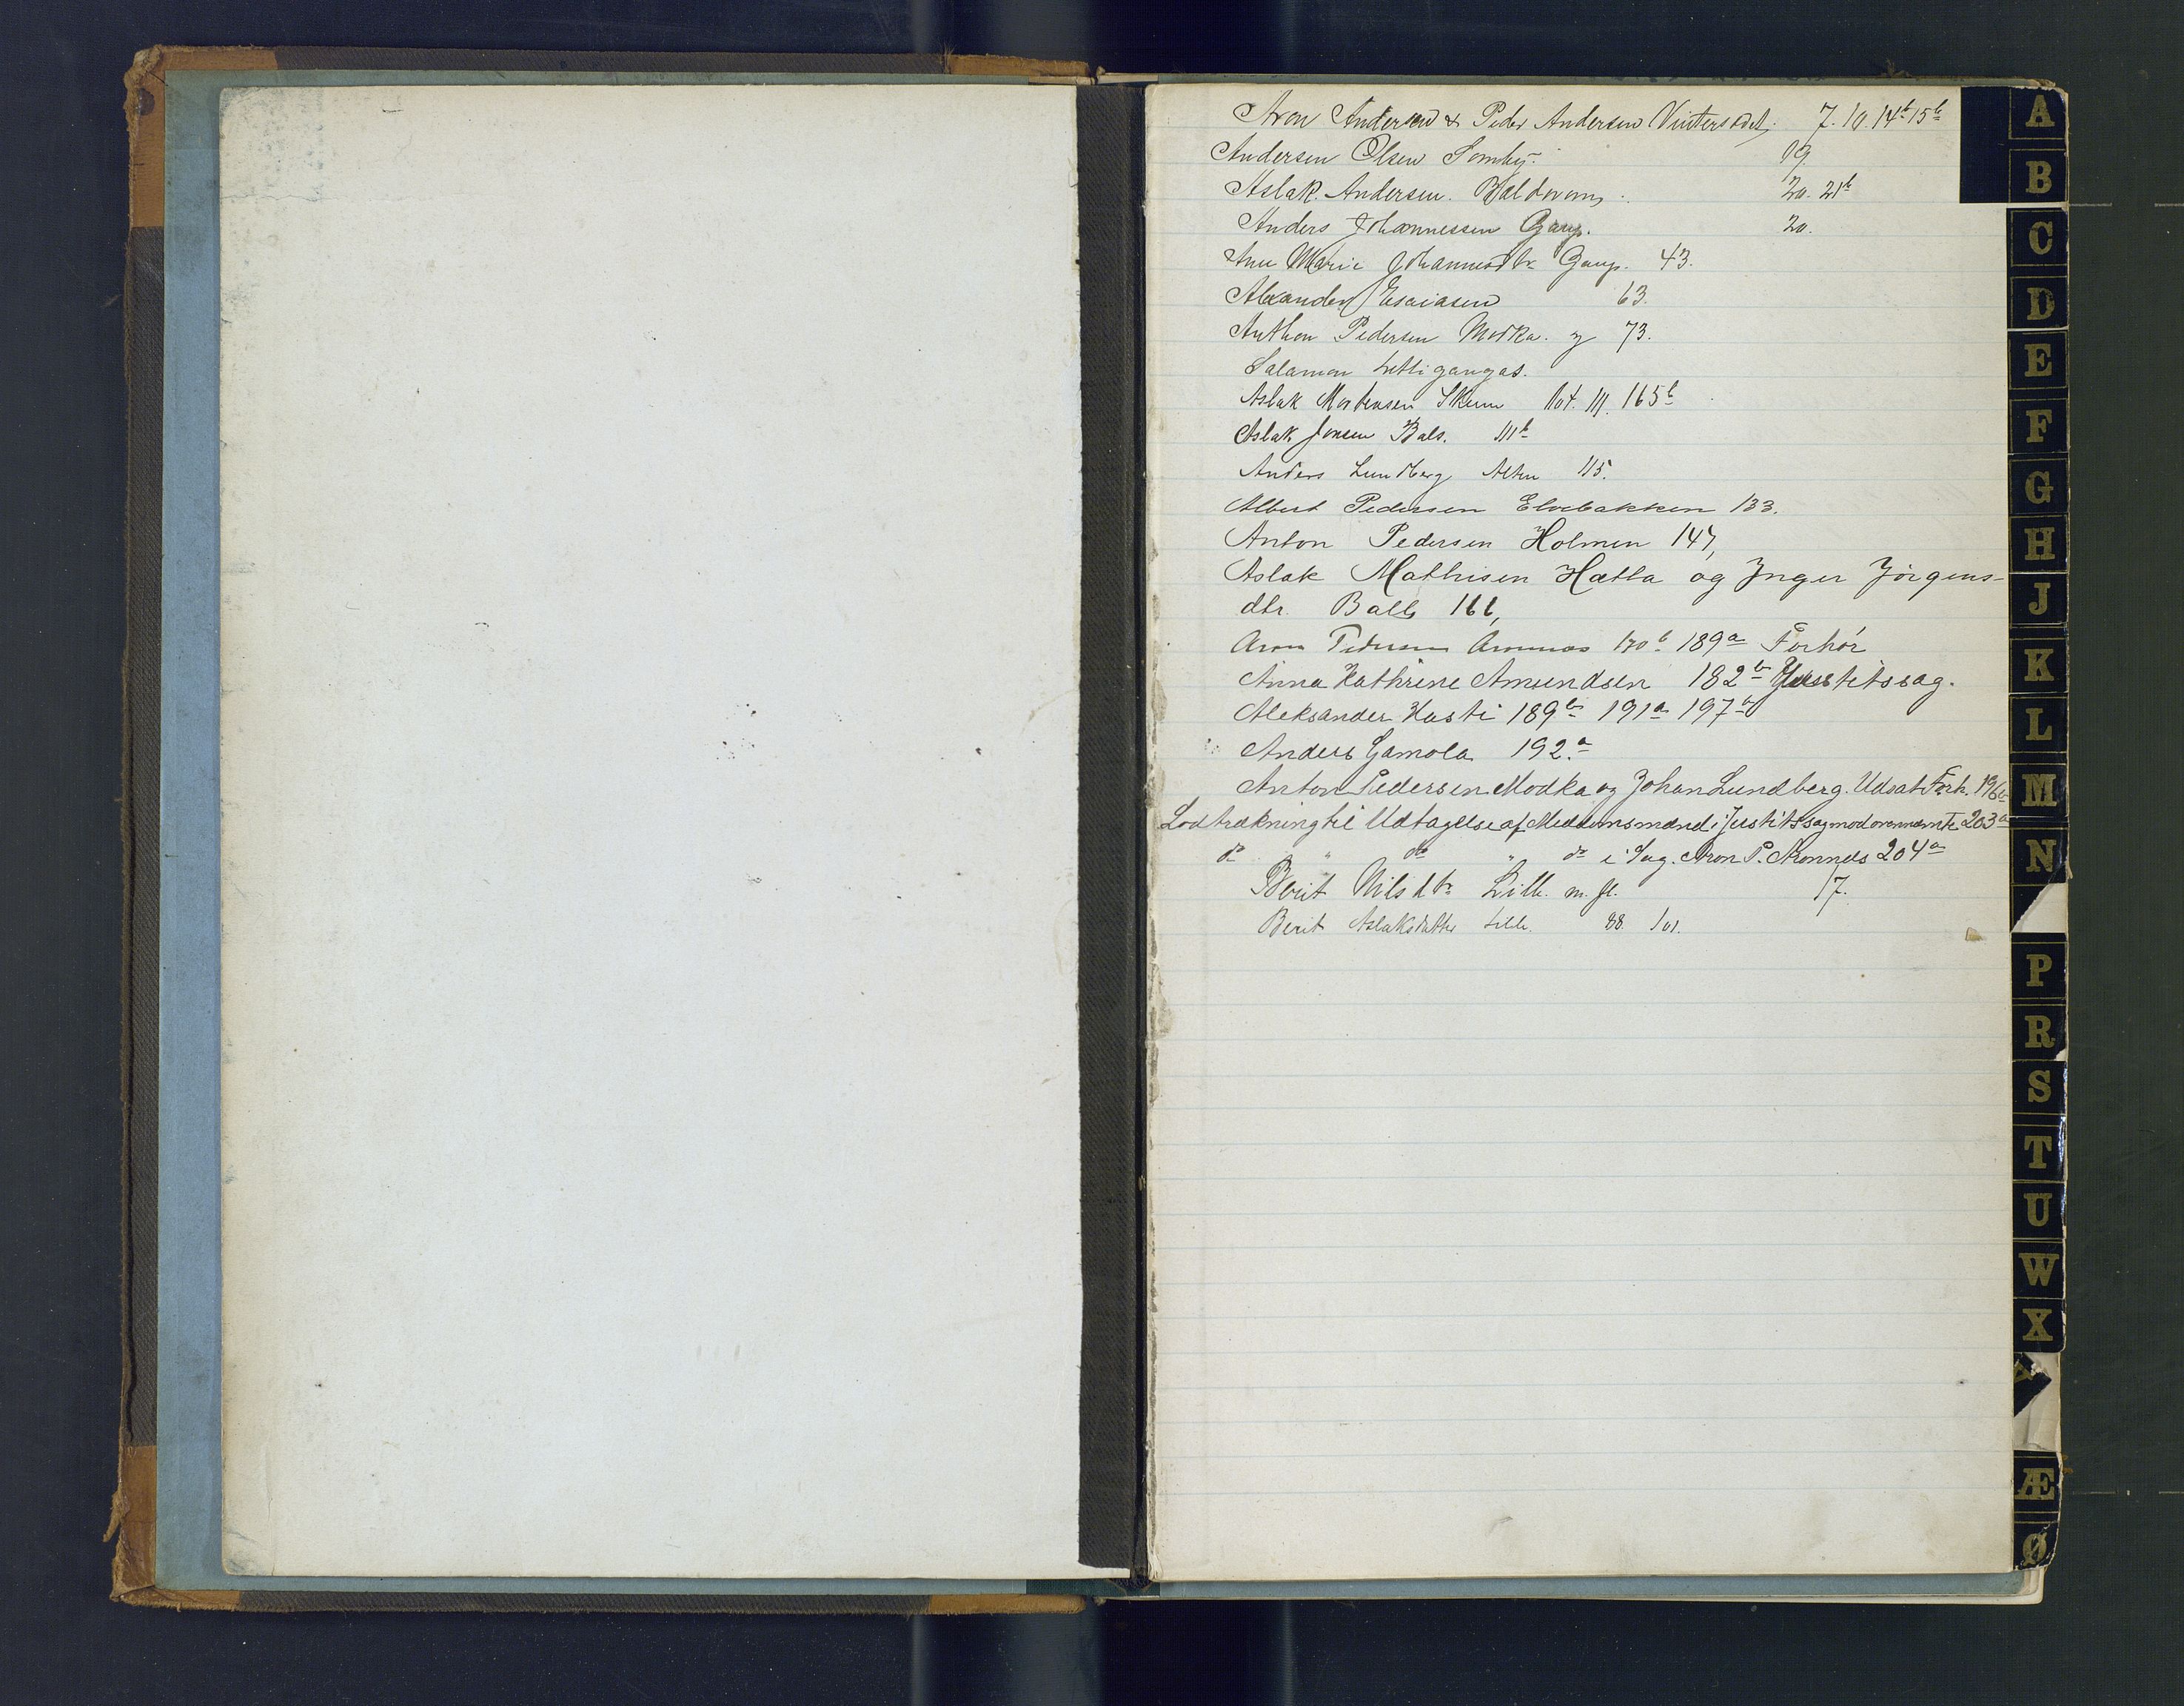 Aron Andersen & Peder Andersen Vintersdal. 7. 10. 14b 15b
Andersen Olsen Somby. 19.
Aslak Andersen 20. 21b
Anders Johannessen Gaup. 20.
Ane Marie Johannesdtr Gaup. 43.
Alexander Esaiasen 63.
Anthon Pedersen Modka. og 73.
Salamon
Aslak Mortensen Skum 104. 111. 165b
Aslak Jonsen Bals. 111b
Anders Lundberg Alten 115.
Albert Pedersen Elvebakken 133.
Anton Pedersen Holmen 147,
Aslak Mathisen Hætta og Inger Jörgens-
dtr. Balls 166,
Aron Pedersen Aronnæs 170b 189a Forhör
Anna Kathrine Amundsen 182b Justitssag.
Aleksander Kusti 189b 191a 197b
Anders Gamola 192.a
Anton Pedersen Modka og Johan Lundberg. Udsat Forh. 196b
Lodtrækning til Udtagelse af Meddomsmænd i Justitssag mod ovennævnte 203a
do " do " do i Sag. Aron P. Aronnes 204a
Berit Nilsdtr Lille. m. fl. 17.
Berit Aslaksdatter Lille. 88. 101.
A
B
C
D
E
F
G
H
J
K
L
M
N
P
R
S
T
U
W
X
Y
Æ
Ø